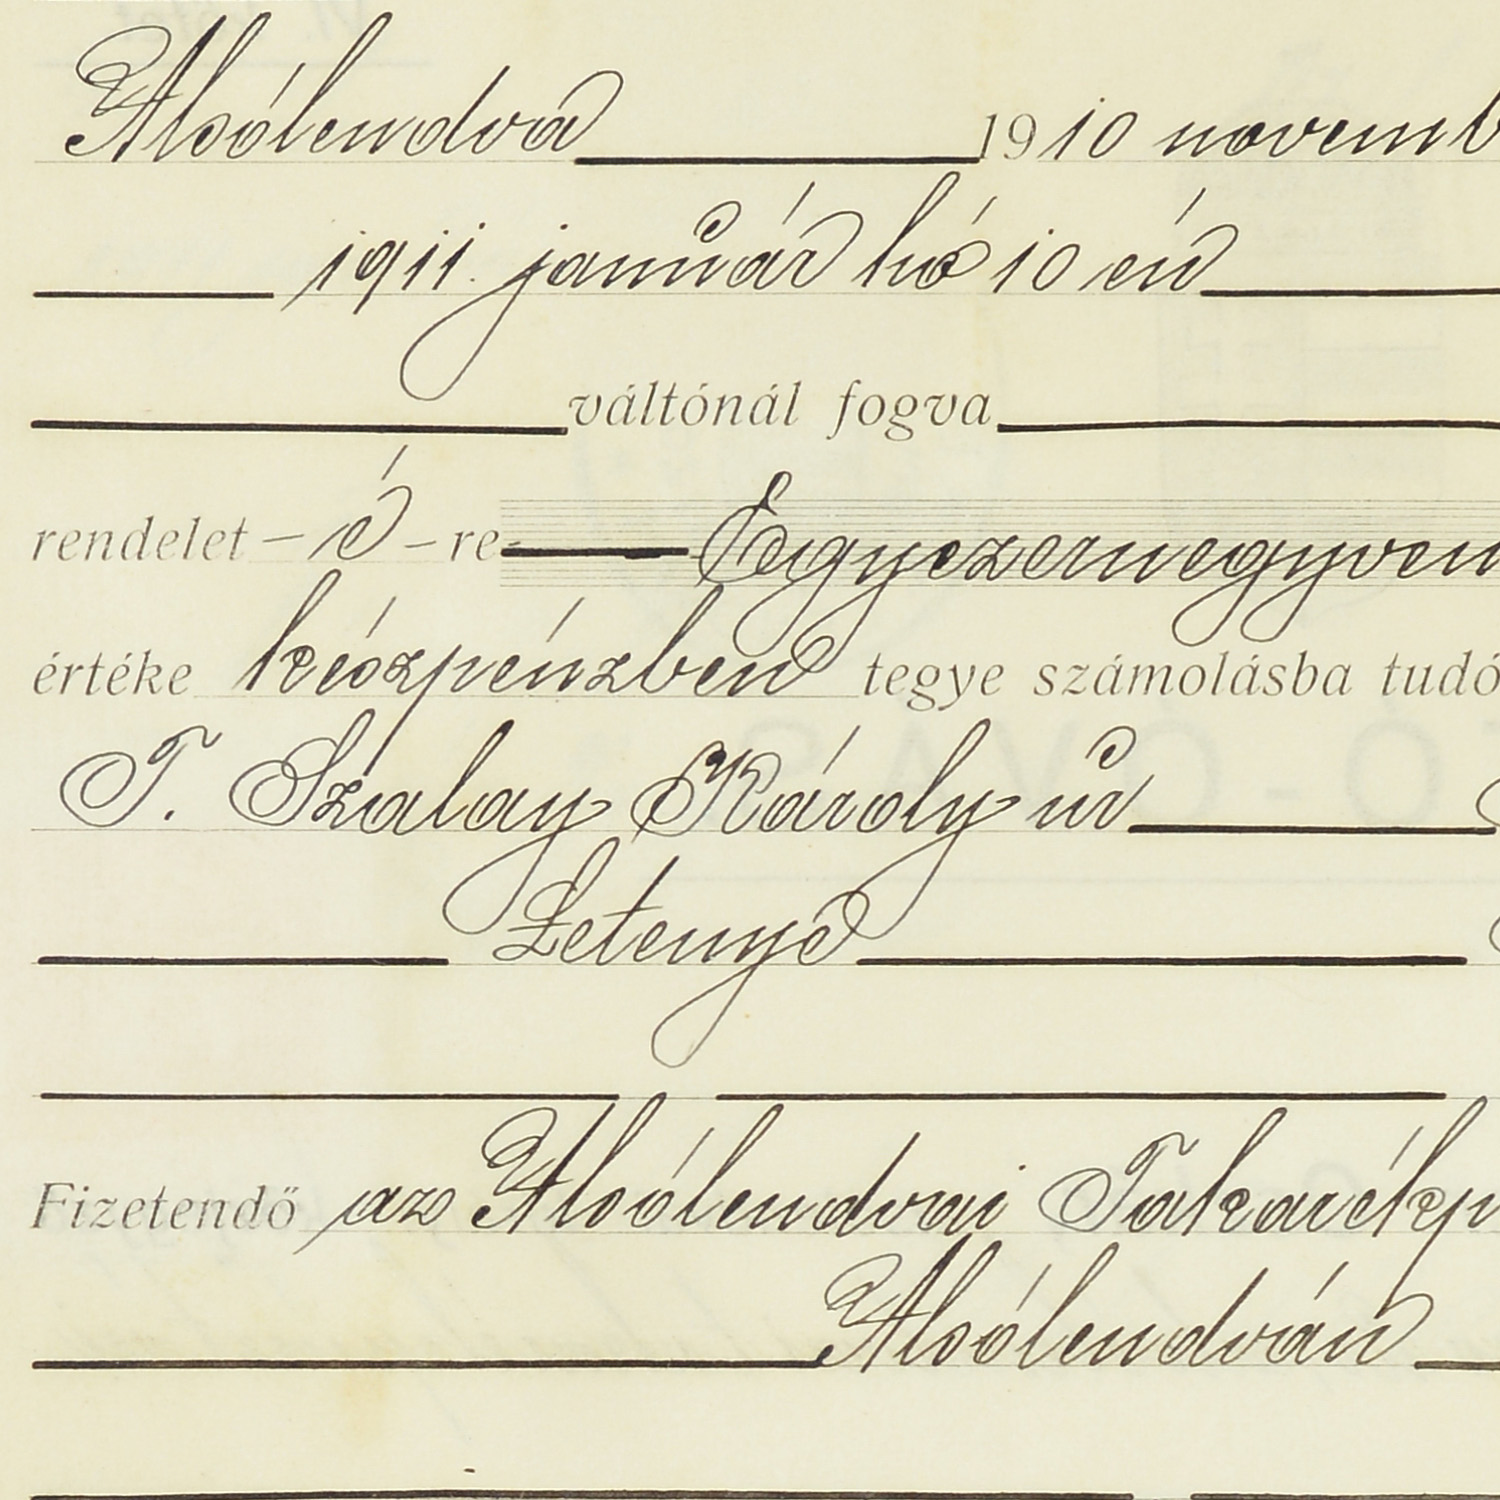 Alsólendva 1910 novemb
1911. január hó 10 én
váltónál fogva
rendelet – é – re Egyezernegyven
értéke készpénzben tegye számolásba tudó
T. Szalay Károly úr
Letenye
Fizetendő az Alsólendvai Takarékp
Alsólendván